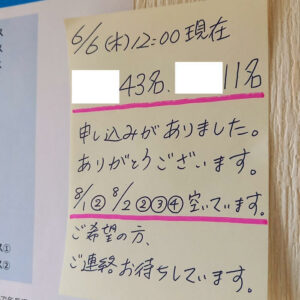 6/6(木)12:00 現在
43名、 11名
申し込みがありました。
ありがとうございます。
8/1② 8/2 ②③④ 空いています。
ご希望の方、
ご連絡お待ちしています。
ス①
ス②